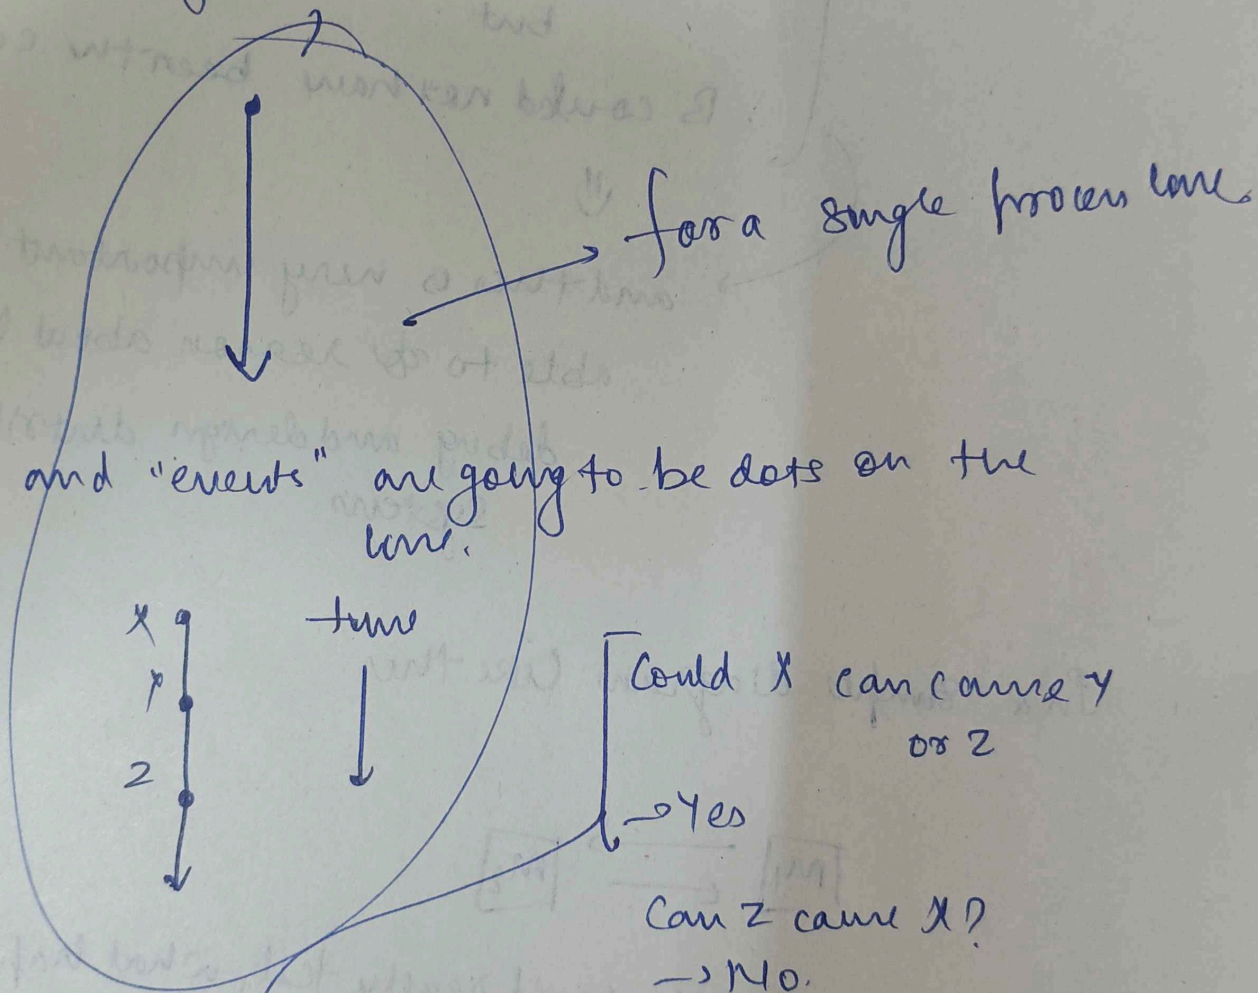 for a single process line.
and "events" are going to be dots on the
line.
X
time
Y
Z
Could X can cause Y
or Z
→ Yes
Can Z cause X?
→ No.